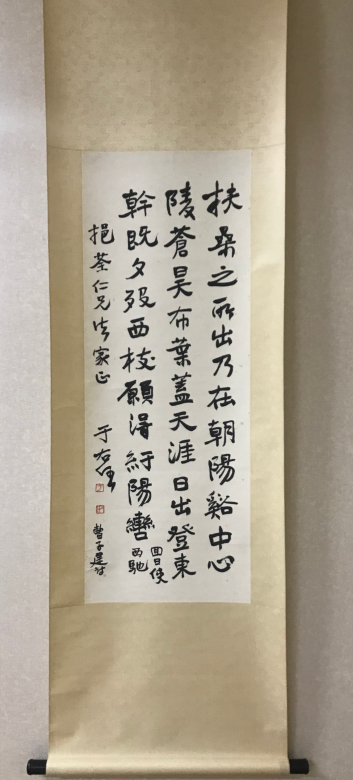 扶桑之所出乃在朝陽谿中心
陵蒼昊布葉蓋天涯日出登東
幹既夕歿西枝願得紆陽轡
回日使
西馳
挹荃仁兄法家正
于右任
曹子建詩